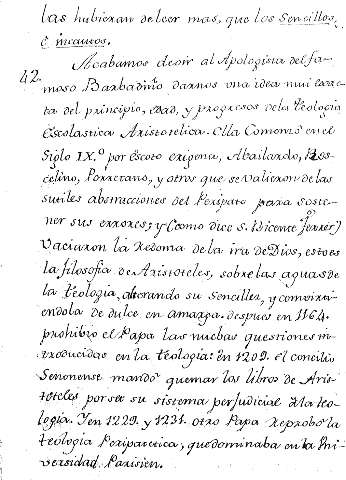 las hubieran de leer mas, que los Sencillos,
é incautos.
42. Acabamos de oir al Apologista del fa-
moso Barbadiño darnos una idea mui exac-
ta del principio, edad, y progresos de la Teologia
Escolastica Aristotelica. Ella Comenzó en el
Siglo IX.º por Escoto erigena, Abailardo, Ros-
celino, Porretano, y otros que se valieron de las
sutiles abstracciones del Peripato para soste-
ner sus errores; y (como dice S. Vicente Ferrer)
vaciaron la Redoma de la ira de Dios, esto es
la filosofia de Aristoteles, sobre las aguas de
la teologia, alterando su Sencillez, y convirti-
endola de dulce en amarga. despues en 1164.
prohibió el Papa las nuebas questiones in-
troducidas en la teologia: en 1209. el concilio
Senonense mandó quemar los libros de Aris-
toteles por ser su sistema perjudicial à la teo-
logia. Y en 1229. y 1231. otro Papa Reprobó la
teologia Peripatetica, que dominaba en la Uni-
versidad Parisien.